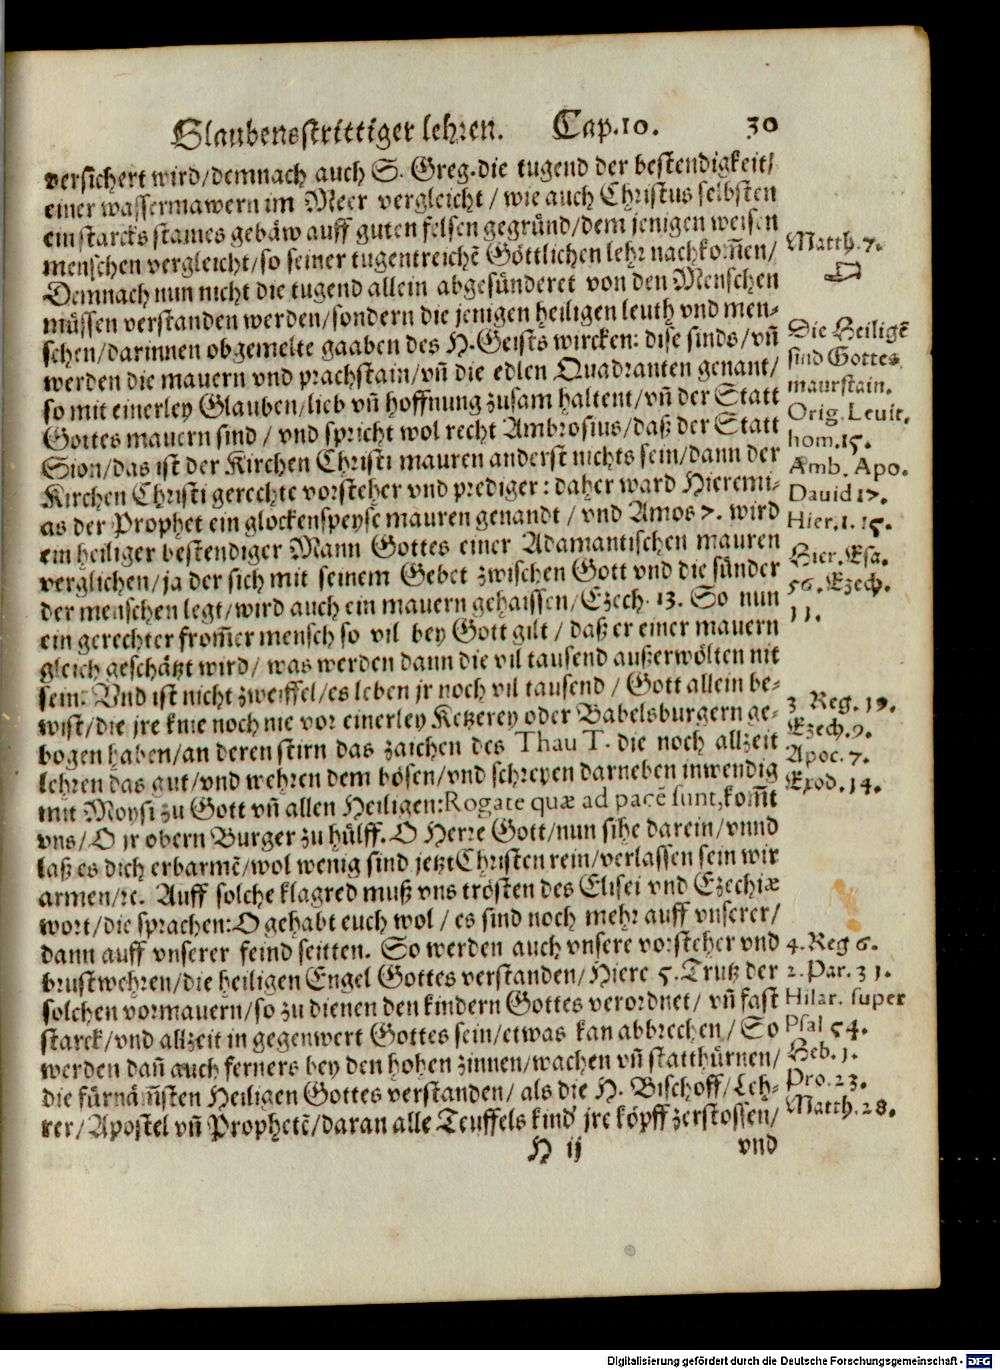 Glaubensstrittiger lehren. Cap.10. 30
versichert wird/demnach auch S. Greg.die tugend der bestendigkeit/
einer wassermawern im Meer vergleicht / wie auch Christus selbsten
ein starcks staines gebäw auff guten felsen gegründ/dem jenigen weisen
menschen vergleicht/so seiner tugentreichẽ Göttlichen lehr nachkom̃en/
Demnach nun nicht die tugend allein abgesünderet von den Menschen
müssen verstanden werden/sondern die jenigen heiligen leuth vnd men-
schen/darinnen obgemelte gaaben des H.Geists wircken: dise sinds/vñ
werden die mauern vnd prachstain/vñ die edlen Quadranten genant/
so mit einerley Glauben/lieb vñ hoffnung zusam haltent/vñ der Statt
Gottes mauern sind / vnd spricht wol recht Ambrosius/daß der Statt
Sion/das ist der Kirchen Christi mauren anderst nichts sein/dann der
Kirchen Christi gerechte vorsteher vnd prediger: daher ward Hieremi-
as der Prophet ein glockenspeyse mauren genandt / vnd Amos 7. wird
ein heiliger bestendiger Mann Gottes einer Adamantischen mauren
verglichen/ja der sich mit seinem Gebet zwischen Gott vnd die sünder
der menschen legt/wird auch ein mauern gehaissen/Ezech. 13. So nun
ein gerechter from̃er mensch so vil bey Gott gilt / daß er einer mauern
gleich geschätzt wird/ was werden dann die vil tausend außerwölten nit
sein. Vnd ist nicht zweiffel/es leben jr noch vil tausend / Gott allein be-
wist/die jre knie noch nie vor einerley Ketzerey oder Babelsburgern ge-
bogen haben/an deren stirn das zaichen des Thau T. die noch allzeit
lehren das gut/vnd wehren dem bösen/vnd schreyen darneben inwendig
mit Moysi zu Gott vñ allen Heiligen:Rogate quæ ad pacẽ sunt,kom̃t
vns/O jr obern Burger zu hülff. O Herre Gott/nun sihe darein/vnnd
laß es dich erbarmẽ/wol wenig sind jetzt Christen rein/verlassen sein wir
armen/ꝛc. Auff solche klagred muß vns trösten des Elisei vnd Ezechiæ
wort/die sprachen:O gehabt euch wol / es sind noch mehr auff vnserer/
dann auff vnserer feind seitten. So werden auch vnsere vorsteher vnd
brustwehren/die heiligen Engel Gottes verstanden/Hiere 5. Trutz der
solchen vormauern/so zu dienen den kindern Gottes verordnet/ vñ fast
starck/vnd allzeit in gegenwert Gottes sein/etwas kan abbrechen/ So
werden dañ auch ferners bey den hohen zinnen/wachen vñ statthürnen/
die fürnäm̃sten Heiligen Gottes verstanden/ als die H. Bischoff/Leh-
rer/Apostel vñ Prophetẽ/daran alle Teuffels kind jre köpff zerstossen/
H ij vnd
Matth. 7.
Die Heiligẽ
sind Gottes
maurstain.
Orig. Leuit.
hom.15.
Amb. Apo.
Dauid 17.
Hier.1. 15.
Hier. Esa.
56. Ezech.
11.
3. Reg. 19.
Ezech.9.
Apoc. 7.
Exod. 14.
4. Reg 6.
2. Par. 31.
Hilar. super
Psal 54.
Heb. 1.
Pro. 23.
Matth. 28.
Digitalisierung gefördert durch die Deutsche Forschungsgemeinschaft - DFG